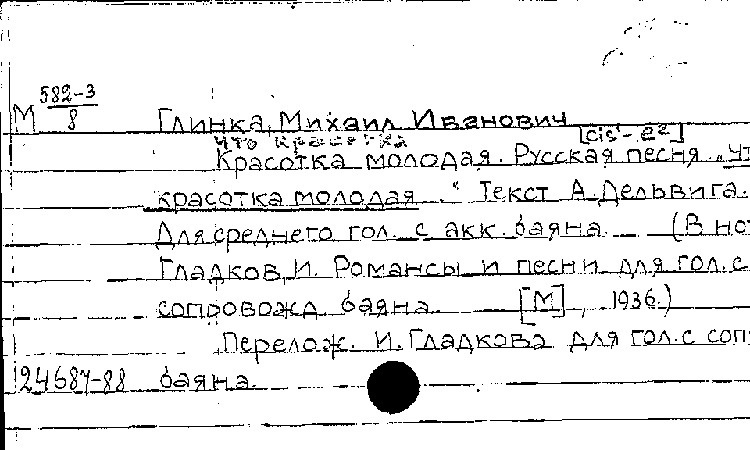 М 582-3/8
Глинка, Михаил Иванович
что красотка [cis¹-e²]
Красотка молодая. Русская песня „Чт
красотка молодая." Текст А. Дельвига.
Для среднего гол. с акк. баяна. (В нот
Гладков, И. Романсы и песни для гол. с
сопровожд. баяна. [М], 1936.)
Перелож. И. Гладкова для гол. с соп
24687-88 баяна.